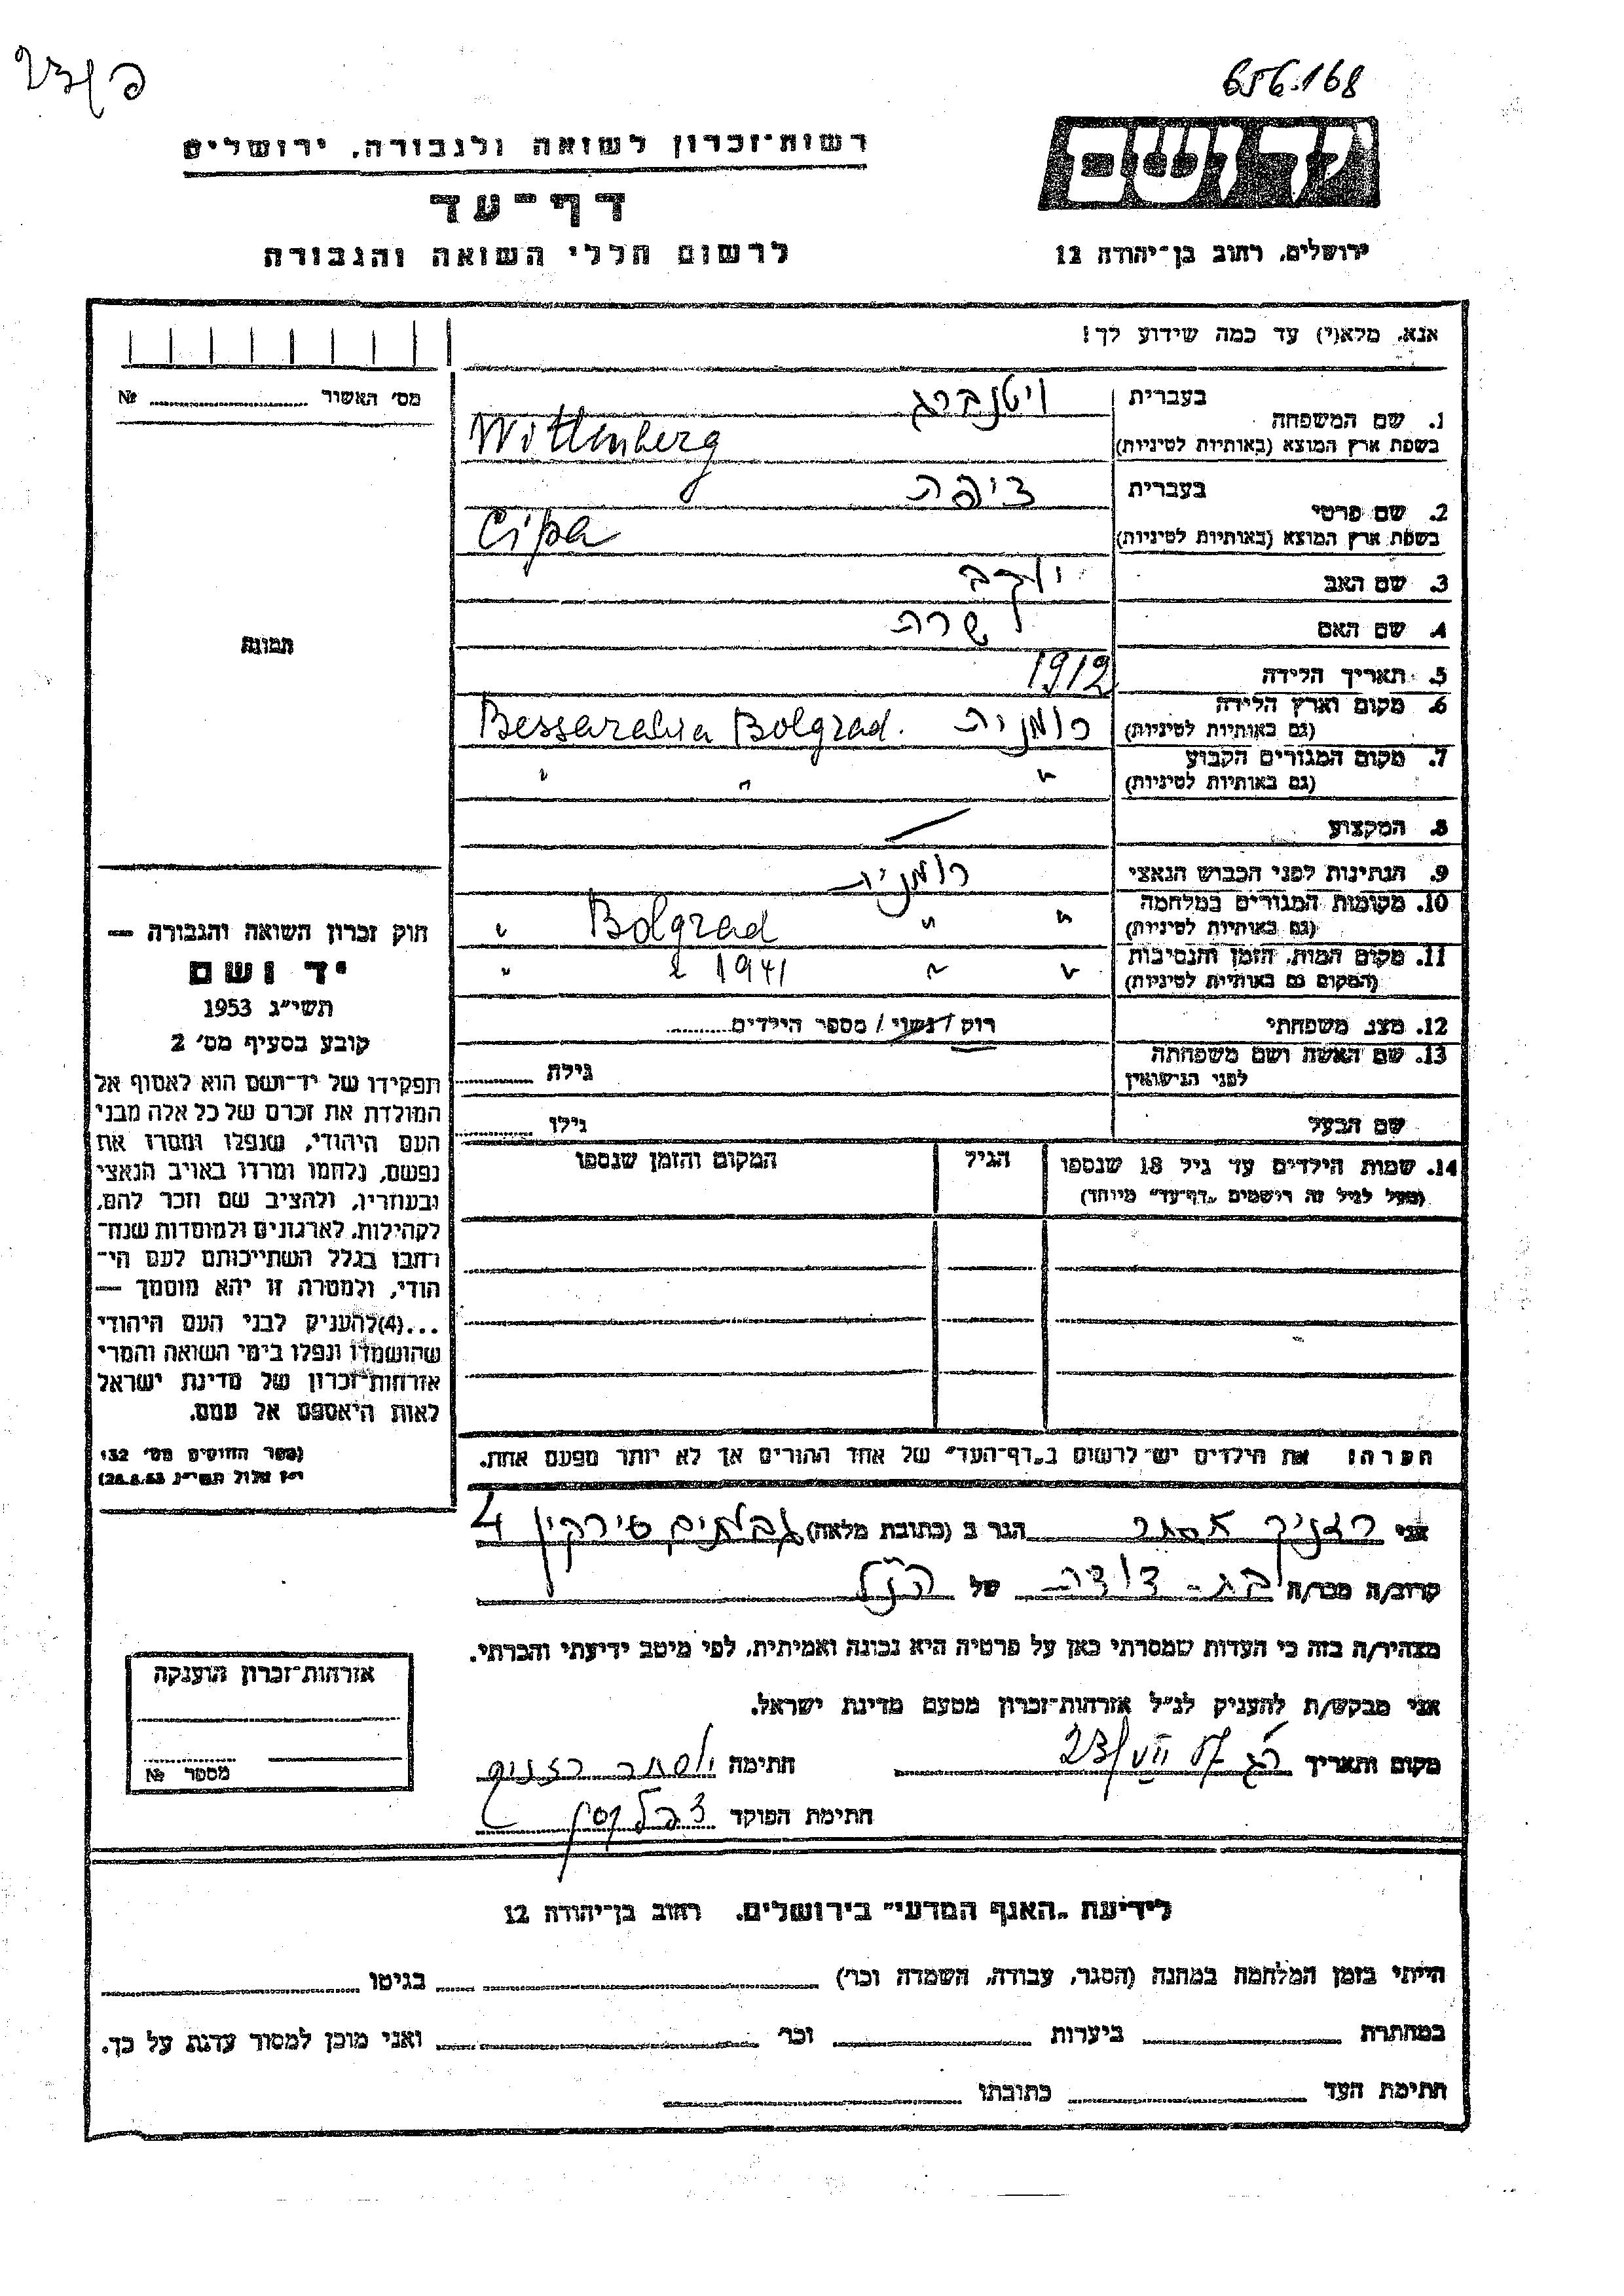 656.168
רשות־זכרון לשואה ולגבורה, ירושלים
דף־עד
לרשום חללי השואה והגבורה
ידושם
ירושלים, רחוב בן־יהודה 12
אנא, מלא(י) עד כמה שידוע לך!
מס׳ האשור № 
1. שם המשפחה בעברית ויטנברג
בשפת ארץ המוצא (באותיות לטיניות) Wittenberg
2. שם פרטי בעברית ציפה
בשפת ארץ המוצא (באותיות לטיניות) Cipa
3. שם האב יעקב
4. שם האם שרה
5. תאריך הלידה 1912
6. מקום וארץ הלידה (גם באותיות לטיניות) רומניה Bessarabia Bolgrad.
7. מקום המגורים הקבוע (גם באותיות לטיניות) " " "
8. המקצוע —
9. הנתינות לפני הכבוש הנאצי רומנית
10. מקומות המגורים במלחמה (גם באותיות לטיניות) " " Bolgrad "
11. מקום המות, הזמן והנסיבות (המקום גם באותיות לטיניות) " " 1941 "
12. מצב משפחתי רווק / נשוי / מספר הילדים
13. שם האשה ושם משפחתה לפני הנישואין גילה
שם הבעל גילו
14. שמות הילדים עד גיל 18 שנספו הגיל המקום והזמן שנספו
(מעל לגיל זה רישמים „דף־עד״ מיוחד)
הערה: את הילדים יש לרשום ב„דף־העד״ של אחד ההורים אך לא יותר מפעם אחת.
תמונה
חוק זכרון השואה והגבורה —
יד ושם
תשי״ג 1953
קובע בסעיף מס׳ 2
תפקידו של יד־ושם הוא לאסוף אל
המולדת את זכרם של כל אלה מבני
העם היהודי, שנפלו ומסרו את
נפשם, נלחמו ומרדו באויב הנאצי
ובעוזריו, ולהציב שם וזכר להם,
לקהילות, לארגונים ולמוסדות שנח־
רבו בגלל השתייכותם לעם הי־
הודי, ולמטרה זו יהא מוסמך —
...(4) להעניק לבני העם היהודי
שהושמדו ונפלו בימי השואה והמרי
אזרחות־זכרון של מדינת ישראל
לאות היאספם אל עמם.
(ספר החוקים מס׳ 132
י״ז אלול תשי״ג 28.8.53)
אני רזניק אסתר הגר ב (כתובת מלאה) גבעתיים סירקין 4
קרוב/ה מכר/ה בת-דודה של הנ״ל
מצהיר/ה בזה כי העדות שמסרתי כאן על פרטיה היא נכונה ואמיתית, לפי מיטב ידיעתי והכרתי.
אני מבקש/ת להעניק לנ״ל אזרחות־זכרון מטעם מדינת ישראל.
מקום ותאריך רג 23/VII 57 חתימה אסתר רזניק
חתימת הפוקד
אזרחות־זכרון הוענקה
מספר №
לידיעת „האגף המדעי״ בירושלים, רחוב בן־יהודה 12
הייתי בזמן המלחמה במחנה (הסגר, עבודה, השמדה וכר׳) בגיטו
במחתרת ביערות וכר׳ ואני מוכן למסור עדות על כך.
חתימת העד כתובתו